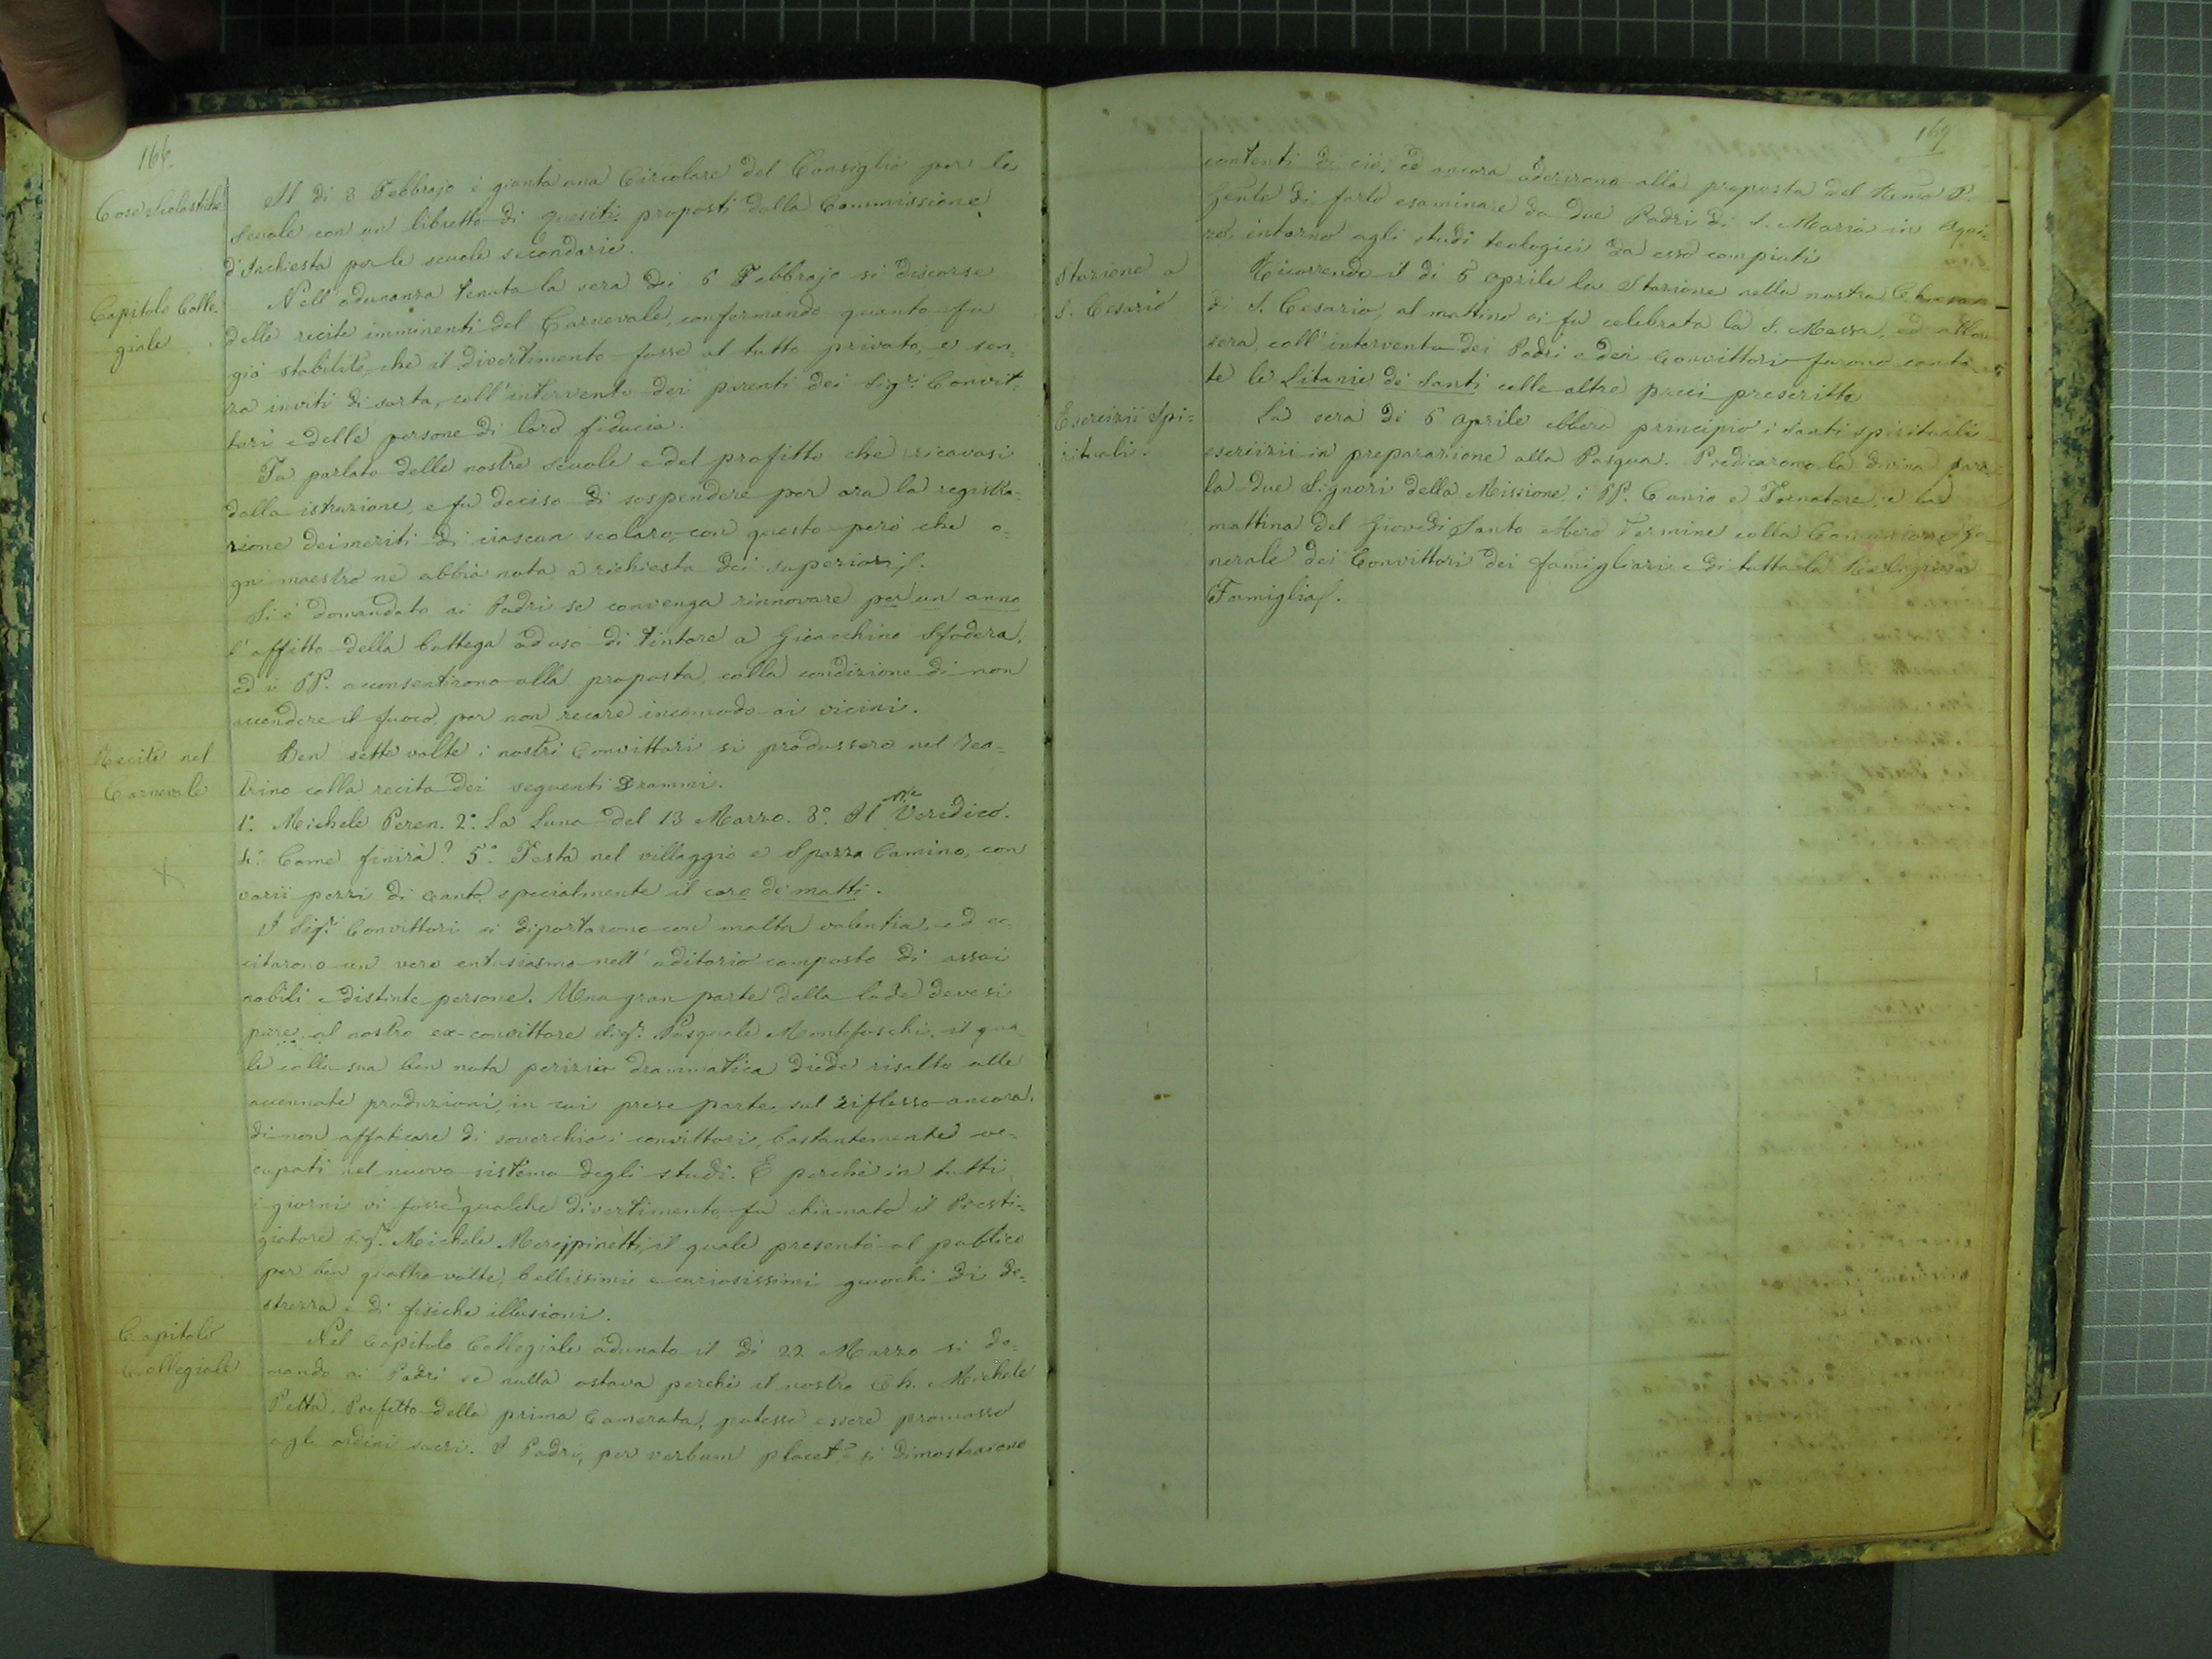 166.
Cose Scolastiche
Il dì 3 Febbrajo è giunta una Circolare del Consiglio per le
scuole con un libretto di quesiti proposti dalla Commissione
d'Inchiesta per le scuole secondarie.
Capitolo Colle-
giale
Nell'adunanza tenuta la sera dei 6 Febbrajo si discorse
delle recite imminenti del Carnevale, confermando quanto fu
già stabilito, che il divertimento fosse al tutto privato, e sen-
za inviti di sorta, coll'intervento dei parenti dei Sigri Convit-
tori e delle persone di loro fiducia.
Fu parlato delle nostre scuole e del profitto che ricavasi
dalla istruzione, e fu deciso di sospendere per ora la registra-
zione dei meriti di ciascun scolaro, con questo però che o-
gni maestro ne abbia nota a richiesta dei superiori.
Si è domandato ai Padri se convenga rinnovare per un anno
l'affitto della bottega ad uso di tintore a Gioacchino Sfodera,
ed i PP. acconsentirono alla proposta, colla condizione di non
accendere il fuoco per non recare incomodo ai vicini.
Recite nel
Carnevale
Ben sette volte i nostri Convittori si produssero nel Tea-
trino colla recita dei seguenti Drammi.
1º. Michele Peren. 2º. La Luna del 13 Marzo. 3º. Il Veridico.
4º. Come finirà? 5º. Festa nel villaggio e Spazza Camino, con
varii pezzi di canto, specialmente il coro de' matti.
I Sigri Convittori si diportarono con molta valentia, ed ec-
citarono un vero entusiasmo nell'uditorio composto di assai
nobili e distinte persone. Una gran parte della lode devesi
pure al nostro ex-convittore Sigr. Pasquale Montefoschi, il qua-
le colla sua ben nota perizia drammatica diede risalto alle
accennate produzioni, in cui prese parte sul riflesso ancora
di non affaticare di soverchio i convittori, bastantemente oc-
cupati nel nuovo sistema degli studi. E perchè in tutti
i giorni vi fosse qualche divertimento fu chiamato il Presti-
giatore Sigr. Michele il quale presentò al pubblico
per ben quattro volte, bellissimi e curiosissimi giuochi di de-
strezza e di fisiche illusioni.
Capitolo
Collegiale
Nel Capitolo Collegiale adunato il dì 22 Marzo si do-
mandò ai Padri se nulla ostava perchè il nostro Ch. Michele
Petta, Prefetto della prima Camerata, potesse essere promosso
agli ordini sacri. I Padri, per verbum placet, si dimostrarono
169
contenti di ciò, ed ancora aderirono alla proposta del Remo P.
di farlo esaminare da due Padri di S. Maria in Aqui-
ro, intorno agli studi teologici da esso compiuti
Stazione a
S. Cesario
Ricorrendo il dì 5 Aprile la Stazione nella nostra Chiesa
di S. Cesario, al mattino vi fu celebrata la S. Messa, ed alla
sera, coll'intervento dei Padri e dei Convittori furono canta-
te le Litanie de' Santi colle altre preci prescritte
Esercizii Spi-
rituali.
La sera dè 6 Aprile ebbero principio i Santi spirituali
esercizii in preparazione alla Pasqua. Predicarono la divina paro-
la due Signori della Missione, i PP. Canio e Tornatore, e la
mattina del Giovedì Santo ebbero termine colla Comunione Ge-
nerale dei Convittori dei famigliari e di tutta la Religiosa
Famiglia.